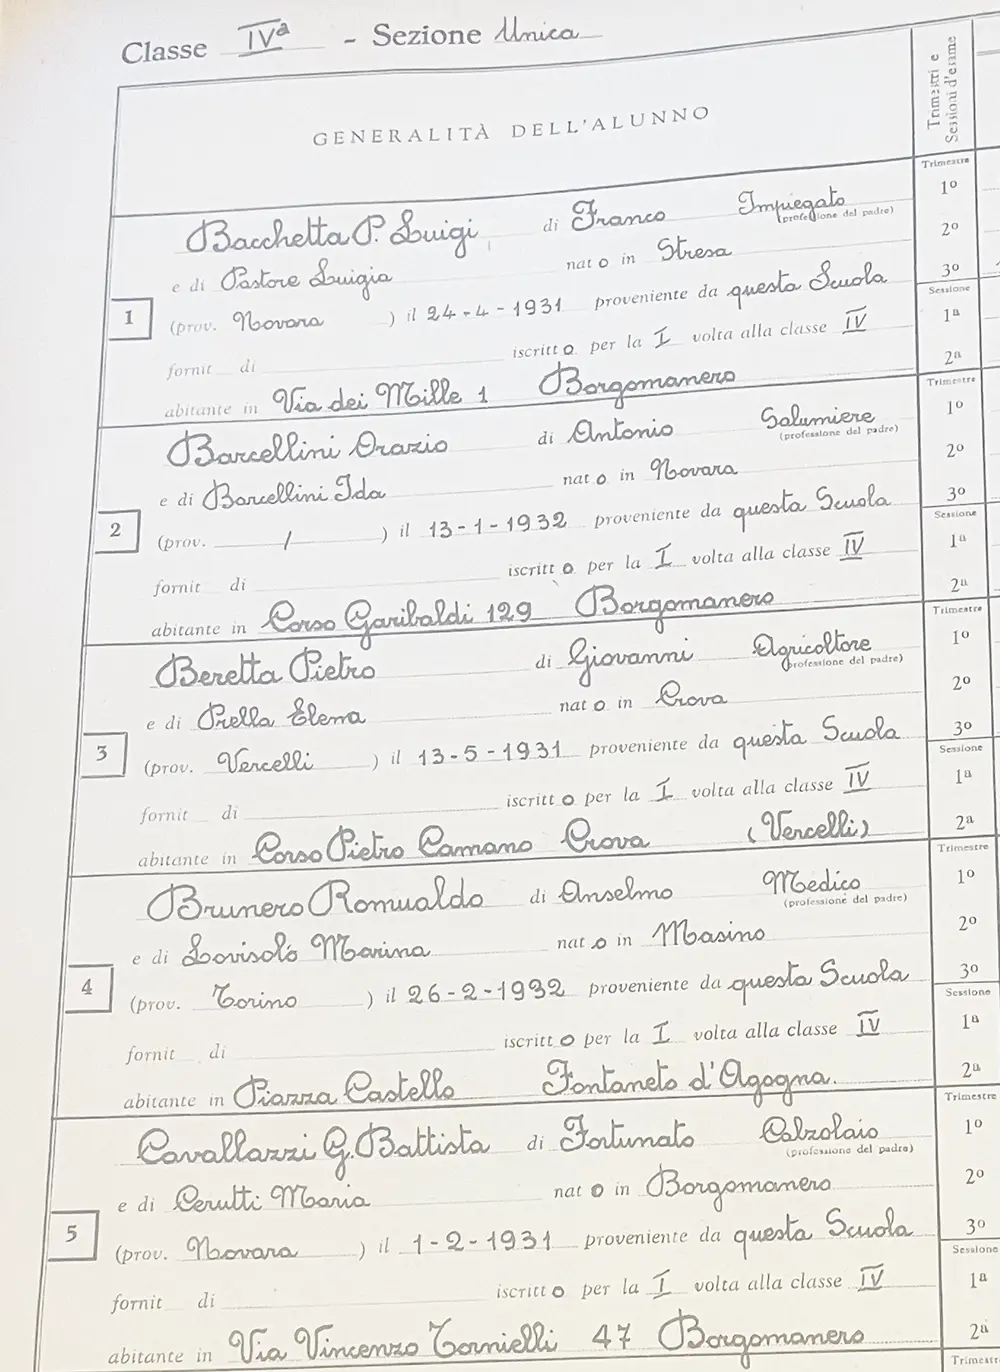 Classe IVª - Sezione Unica
GENERALITÀ DELL'ALUNNO
Trimestri e
Sessioni d'esame
Trimestre
Bacchetta P. Luigi di Franco Impiegato 1º
(professione del padre)
e di Pastore Luigia nato in Stresa 2º
1 (prov. Novara ) il 24-4-1931 proveniente da questa Scuola 3º
Sessione
fornit di iscritto per la I volta alla classe IV 1ª
abitante in Via dei Mille 1 Borgomanero 2ª
Trimestre
Barcellini Orazio di Antonio Salumiere 1º
(professione del padre)
e di Barcellini Ida nato in Novara 2º
2 (prov. / ) il 13-1-1932 proveniente da questa Scuola 3º
Sessione
fornit di iscritto per la I volta alla classe IV 1ª
abitante in Corso Garibaldi 129 Borgomanero 2ª
Trimestre
Beretta Pietro di Giovanni Agricoltore 1º
(professione del padre)
e di Prella Elena nato in Crova 2º
3 (prov. Vercelli ) il 13-5-1931 proveniente da questa Scuola 3º
Sessione
fornit di iscritto per la I volta alla classe IV 1ª
abitante in Corso Pietro Camano Crova (Vercelli) 2ª
Trimestre
Brunero Romualdo di Anselmo Medico 1º
(professione del padre)
e di Lovisolo Marina nato in Masino 2º
4 (prov. Torino ) il 26-2-1932 proveniente da questa Scuola 3º
Sessione
fornit di iscritto per la I volta alla classe IV 1ª
abitante in Piazza Castello Fontaneto d'Agogna. 2ª
Trimestre
Cavallazzi G. Battista di Fortunato Calzolaio 1º
(professione del padre)
e di Cerutti Maria nato in Borgomanero 2º
5 (prov. Novara ) il 1-2-1931 proveniente da questa Scuola 3º
Sessione
fornit di iscritto per la I volta alla classe IV 1ª
abitante in Via Vincenzo Tornielli 47 Borgomanero 2ª
Trimestre